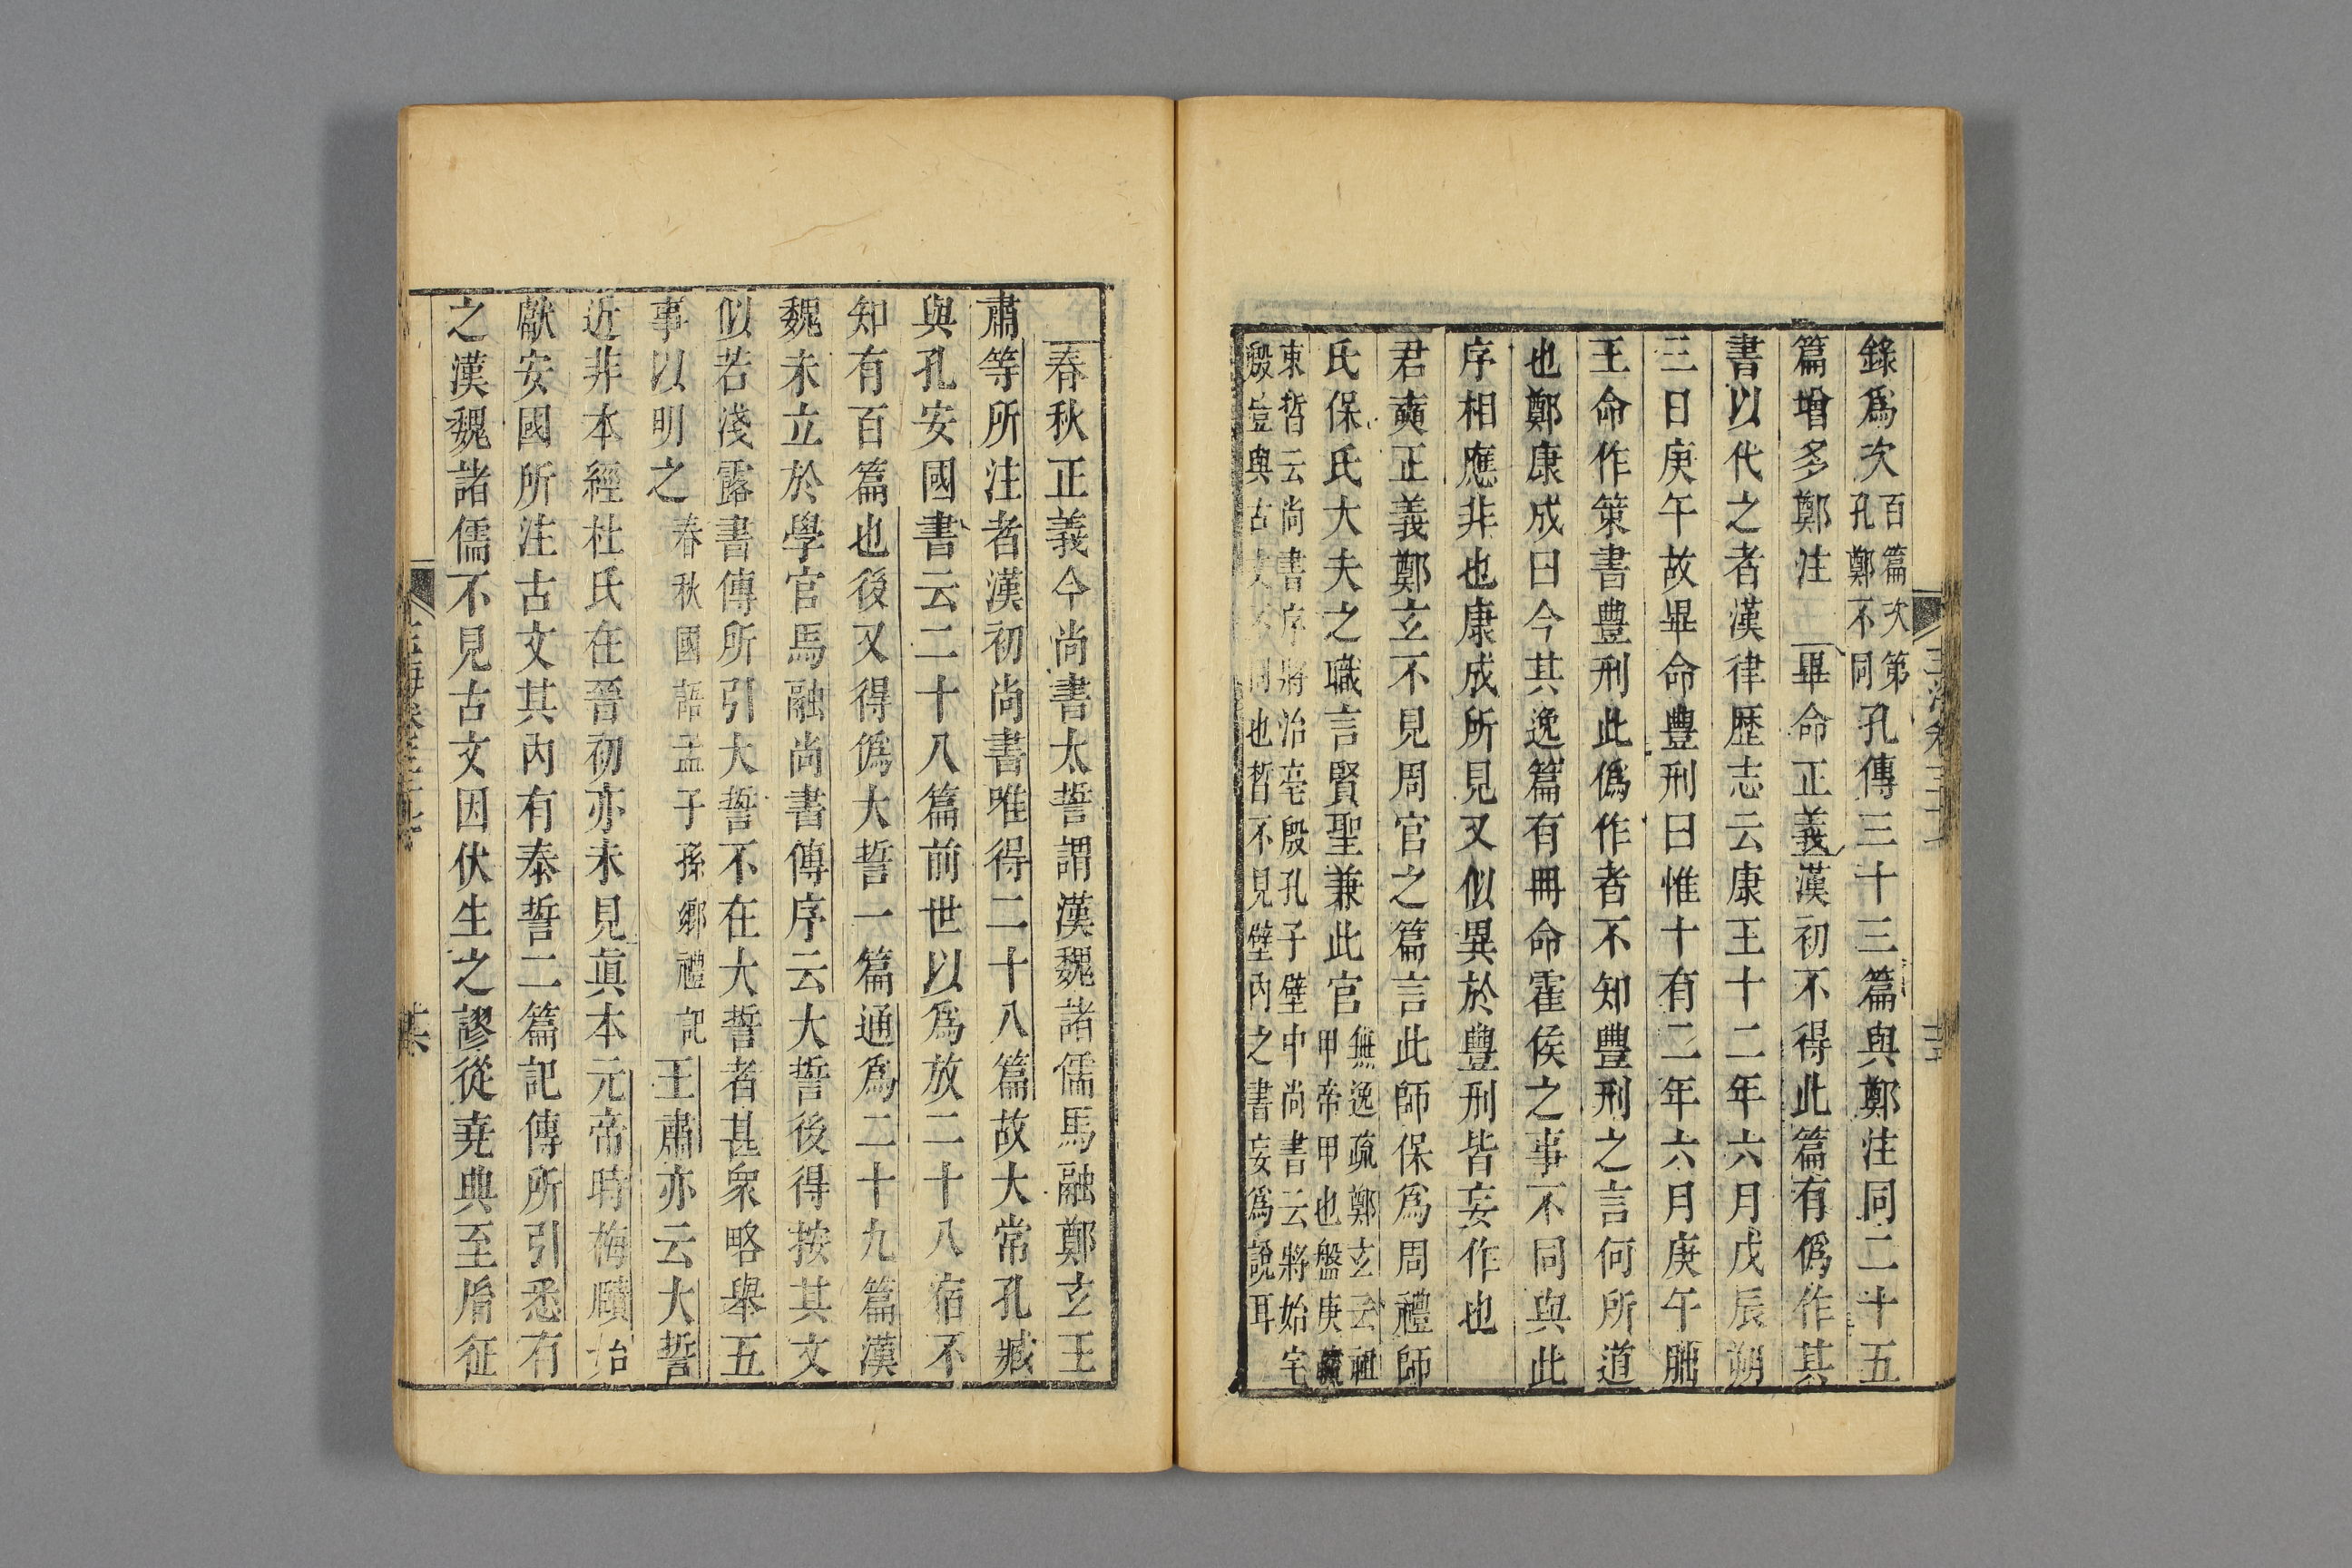 錄爲次百篇次第孔鄭不同孔傳三十三篇與鄭注同二十五
篇增多鄭注 畢命正義漢初不得此篇有僞作其
書以代之者漢律歷志云康王十二年六月戊辰朔
三日庚午故畢命豐刑曰惟十有二年六月庚午朏
王命作策書豐刑此僞作者不知豐刑之言何所道
也鄭康成曰今其逸篇有冊命霍侯之事不同與此
序相應非也康成所見又似異於豐刑皆妄作也
君奭正義鄭玄不見周官之篇言此師保爲周禮師
氏保氏大夫之職言賢聖兼此官無逸疏鄭玄云祖甲帝甲也盤庚疏
束晳云尚書序將治亳殷孔子壁中尚書云將始宅
殷豈與古文不同也晳不見壁內之書妄爲說耳
春秋正義今尚書太誓謂漢魏諸儒馬融鄭玄王
肅等所注者漢初尚書唯得二十八篇故大常孔臧
與孔安國書云二十八篇前世以爲放二十八宿不
知有百篇也後又得僞大誓一篇通爲二十九篇漢
魏未立於學官馬融尚書傳序云大誓後得按其文
似若淺露書傳所引大誓不在大誓者甚衆略舉五
事以明之春秋國語孟子孫鄉禮記王肅亦云大誓
近非本經杜氏在晉初亦未見眞本元帝時梅賾始
獻安國所注古文其內有泰誓二篇記傳所引悉有
之漢魏諸儒不見古文因伏生之謬從堯典至胤征